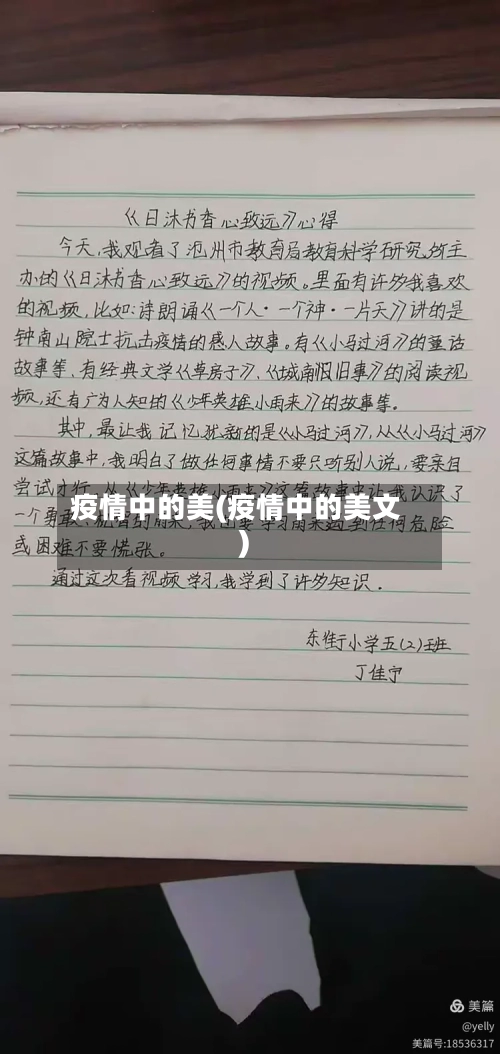 《日沐书香心致远》心得
今天,我观看了沧州市教育局教育科学研究所主
办的《日沐书香心致远》的视频。里面有许多我喜欢
的视频,比如:诗朗诵《一个人·一个神·一片天》讲的是
钟南山院士抗击疫情的感人故事。有《小马过河》的童话
故事等,有经典文学《草房子》、《城南旧事》的阅读视
频,还有广为人知的《少年英雄小雨来》的故事等。
其中,最让我记忆犹新的是《小马过河》,从《小马过河》
这篇故事中,我明白了做任何事情不要只听别人说,要亲自
尝试才行。从《少年英雄小雨来》这篇故事中让我认识了
一个勇敢 的雨来,我 要学习雨来遇到任何危险
或困难不要慌张。
疫情中的美(疫情中的美文
)
通过这次看视频学习,我学到了许多知识.
东街小学五(2)班
丁佳宁
美篇
@yelly
美篇号:18536317